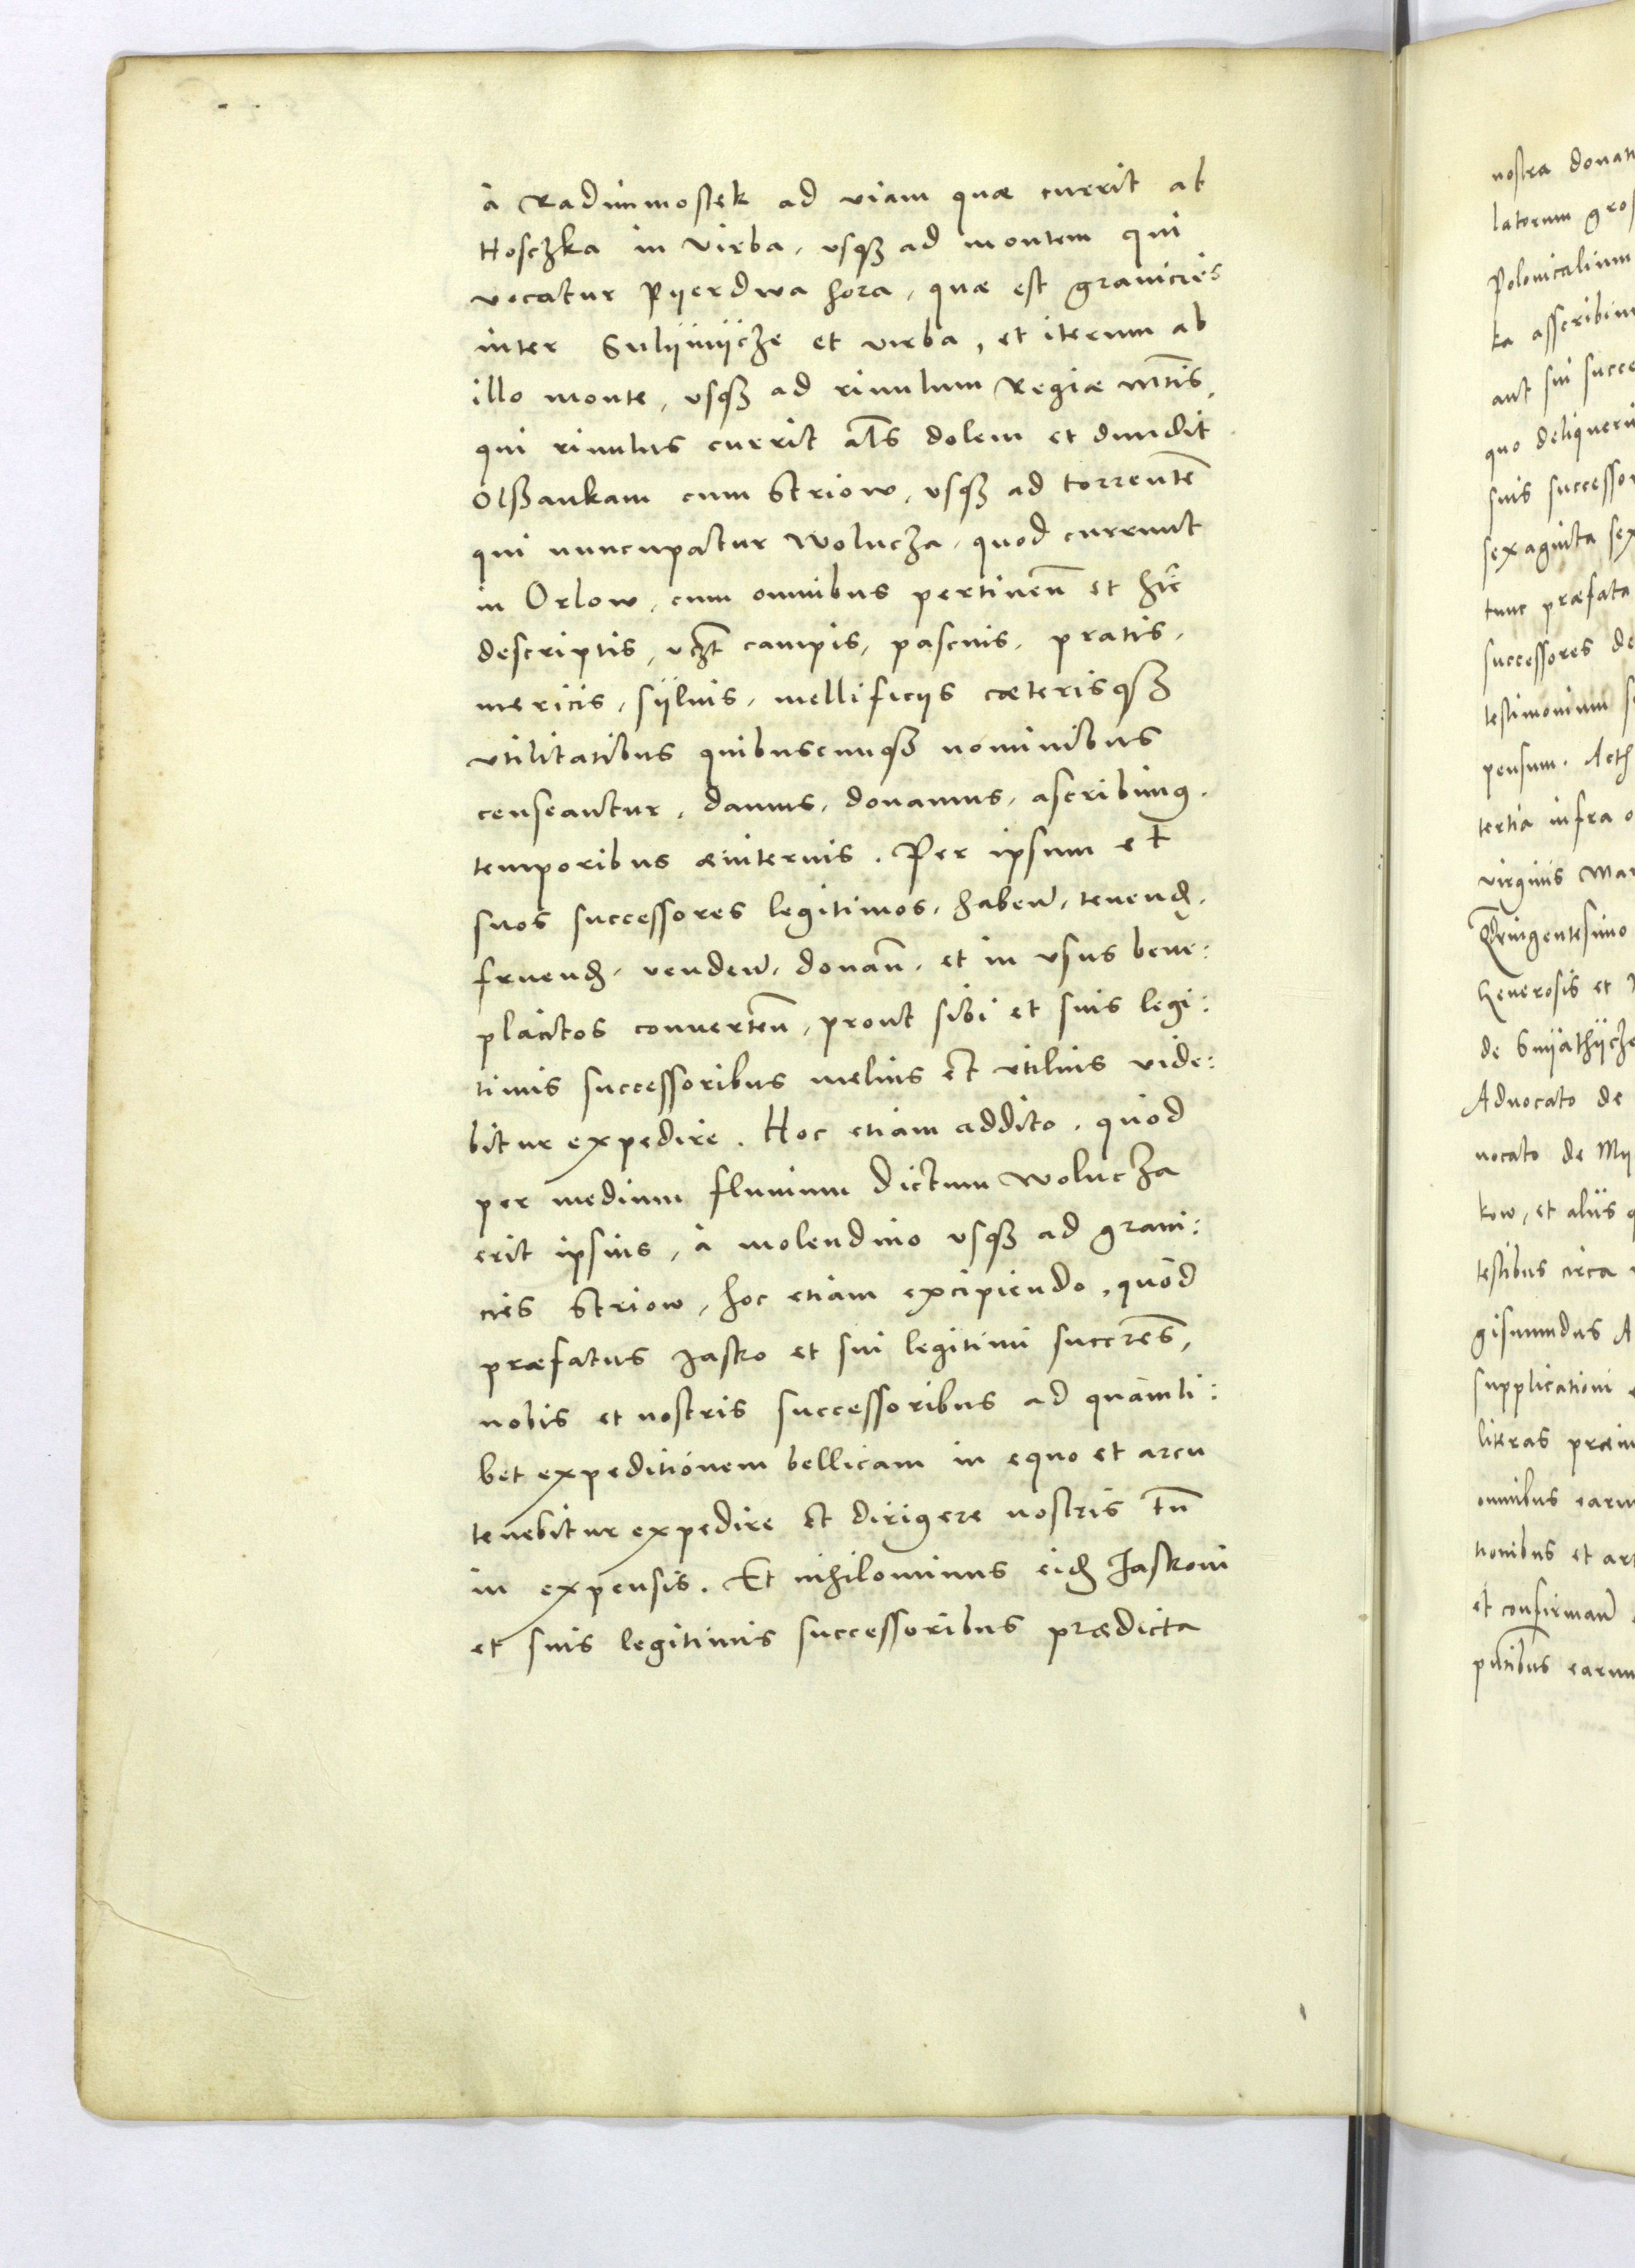 à Radimmostek ad viam quæ currit ab
Hosczka in Virba, vsqȝ ad montem qui
vocatur Pyerdwa hora, quæ est granicies
inter Sulÿmÿcze et virba, et iterum ab
illo monte, vsqȝ ad riuulum Regiæ mt̄is,
qui riuulus currit al̄s dolem et diuidit
Olßankam cum Striow, vsqȝ ad torrentē
qui nuncupatur Wolucza, quod currunt
in Orlow, cum omnibus pertinen̄ et
descriptis, vꝫt campis, pascuis, pratis,
mericis, sÿluis, mellificÿs cæterisqȝ
vtilitatibus quibuscunqȝ nominibus
censeantur, damus, donamus, ascribimꝰ,
temporibus æuiternis. Per ipsum et
suos successores legitimos, haben̄, tenenḑ,
fruenḑ, venden̄, donan̄, et in vsus bene:
placitos conuerten̄, prout sibi et suis legi:
timis successoribus melius et vtilius vide:
bitur expedire. Hoc etiam addito, quòd
per medium fluuium dictum Wolucza
erit ipsius, à molendino vsqȝ ad grani:
cies Striow, hoc etiam excipiendo, quòd
præfatus Jasko et sui legitimi succ̄res,
nobis et nostris successoribus ad quamli:
bet expeditionem bellicam in equo et arcu
tenebitur expedire et dirigere nostris tn̄
in expensis. Et nihilominus eiḑ Jaskoni
et suis legitimis successoribus prædicta
nostra donati
latorum gros
Polonicalium
ka asscribim
aut sui succe
quo deliqueri
suis successor
sexaginta sex
tunc præfata
successores de
testimonium s
pensum. Act
tertia infra o
virginis Mar
Qdringentesimo
Generosis et
de Smÿathÿcze
Aduocato de
uocato de Mÿ
kow, et alÿs q
testibus circa
gismundus A
supplicationi
literas præin
omnibus earu
tionibus et art
et confirman̄
pn̄tibus earum